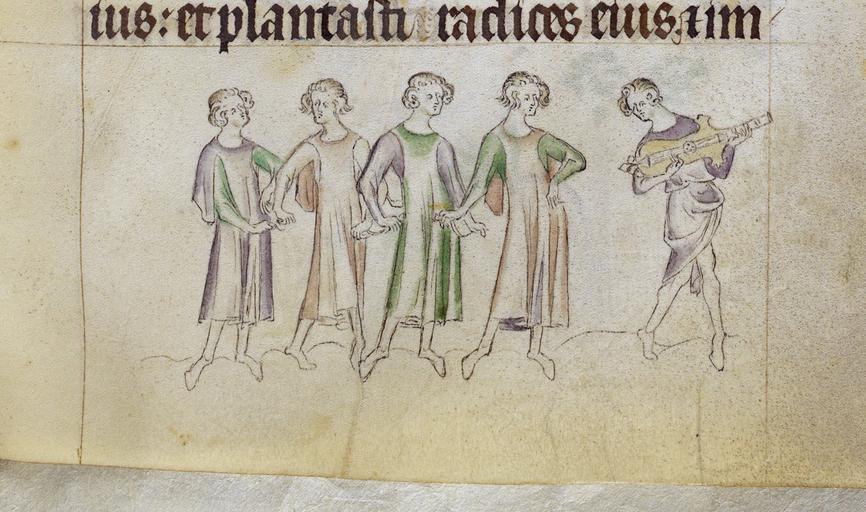 ius: et plantasti radices eius, ⁊ im